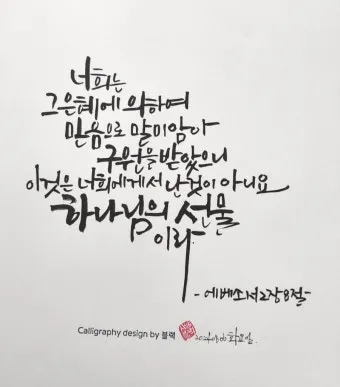 너희는
그 은혜에 의하여
믿음으로 말미암아
구원을 받았으니
이것은 너희에게서 난 것이 아니요
하나님의 선물
이라
-에베소서 2장 8절-
Calligraphy design by 블랙
화요일.